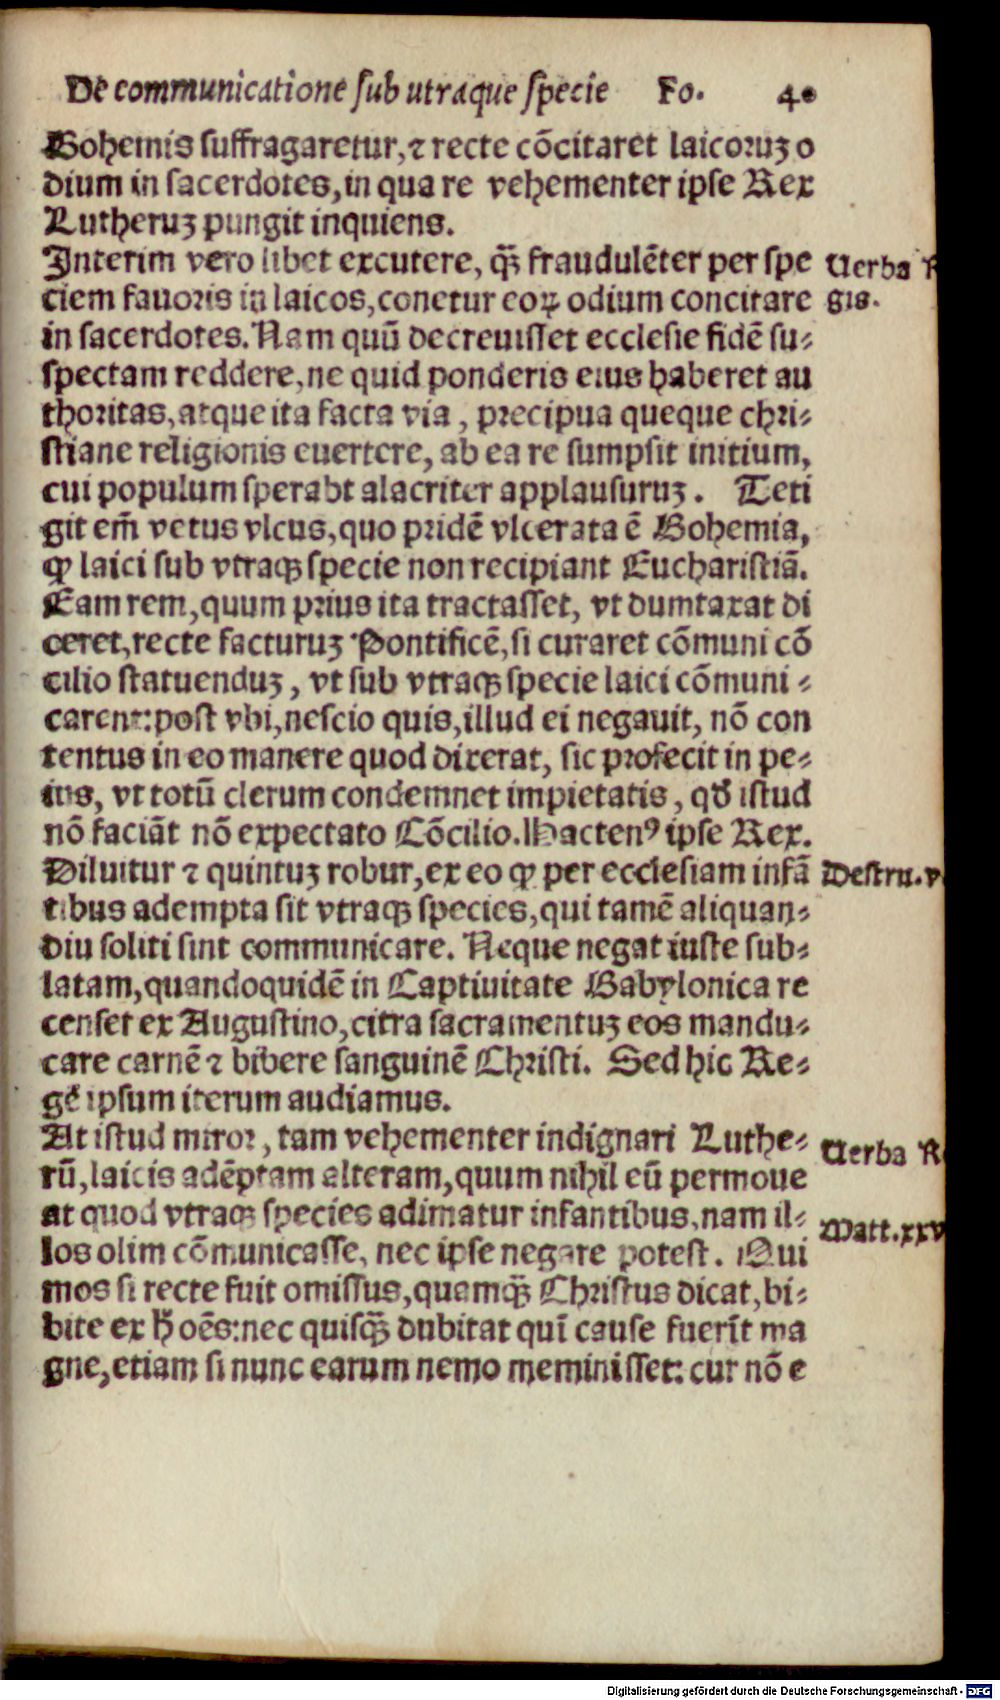 De communicatione sub utraque specie Fo. 40
Bohemis suffragaretur, ⁊ recte cōcitaret laicoruꝫ o
dium in sacerdotes, in qua re vehementer ipse Rex
Lutheruꝫ pungit inquiens.
Interim vero libet excutere, qꝫ̄ fraudulēter per spe
ciem fauoris in laicos, conetur eoꝝ odium concitare
in sacerdotes. Nam quū decreuisset ecclesie fidē su⸗
spectam reddere, ne quid ponderis eius haberet au
thoritas, atque ita facta via, precipua queque chri⸗
stiane religionis euertere, ab ea re sumpsit initium,
cui populum sperabt alacriter applausuruꝫ. Teti
git em̄ vetus vlcus, quo pridē vlcerata ē Bohemia,
ꝙ laici sub vtraqꝫ specie non recipiant Eucharistiā.
Eam rem, quum prius ita tractasset, vt dumtaxat di
ceret, recte facturuꝫ Pontificē, si curaret cōmuni cō
cilio statuenduꝫ, vt sub vtraqꝫ specie laici cōmuni⸗
carent: post vbi, nescio quis, illud ei negauit, nō con
tentus in eo manere quod dixerat, sic profecit in pe⸗
ius, vt totū clerum condemnet impietatis, qđ istud
nō faciāt nō expectato Cōcilio. Hactenꝰ ipse Rex.
Diluitur ⁊ quintuꝫ robur, ex eo ꝙ per ecclesiam infā
tibus adempta sit vtraqꝫ species, qui tamē aliquan⸗
diu soliti sint communicare. Neque negat iuste sub⸗
latam, quandoquidē in Captiuitate Babylonica re
censet ex Augustino, citra sacramentuꝫ eos mandu⸗
care carnē ⁊ bibere sanguinē Christi. Sed hic Re⸗
gē ipsum iterum audiamus.
At istud miror, tam vehementer indignari Luthe⸗
rū, laicis adēptam alteram, quum nihil eū permoue
at quod vtraqꝫ species adimatur infantibus, nam il⸗
los olim cōmunicasse, nec ipse negare potest. Qui
mos si recte fuit omissus, quamqꝫ̄ Christus dicat, bi⸗
bite ex ħ oēs: nec quisqꝫ̄ dubitat quī cause fuerīt ma
gne, etiam si nunc earum nemo meminisset: cur nō e
Uerba R
gis.
Destru. v
Uerba Re
Matt. xxv
Digitalisierung gefördert durch die Deutsche Forschungsgemeinschaft - DFG